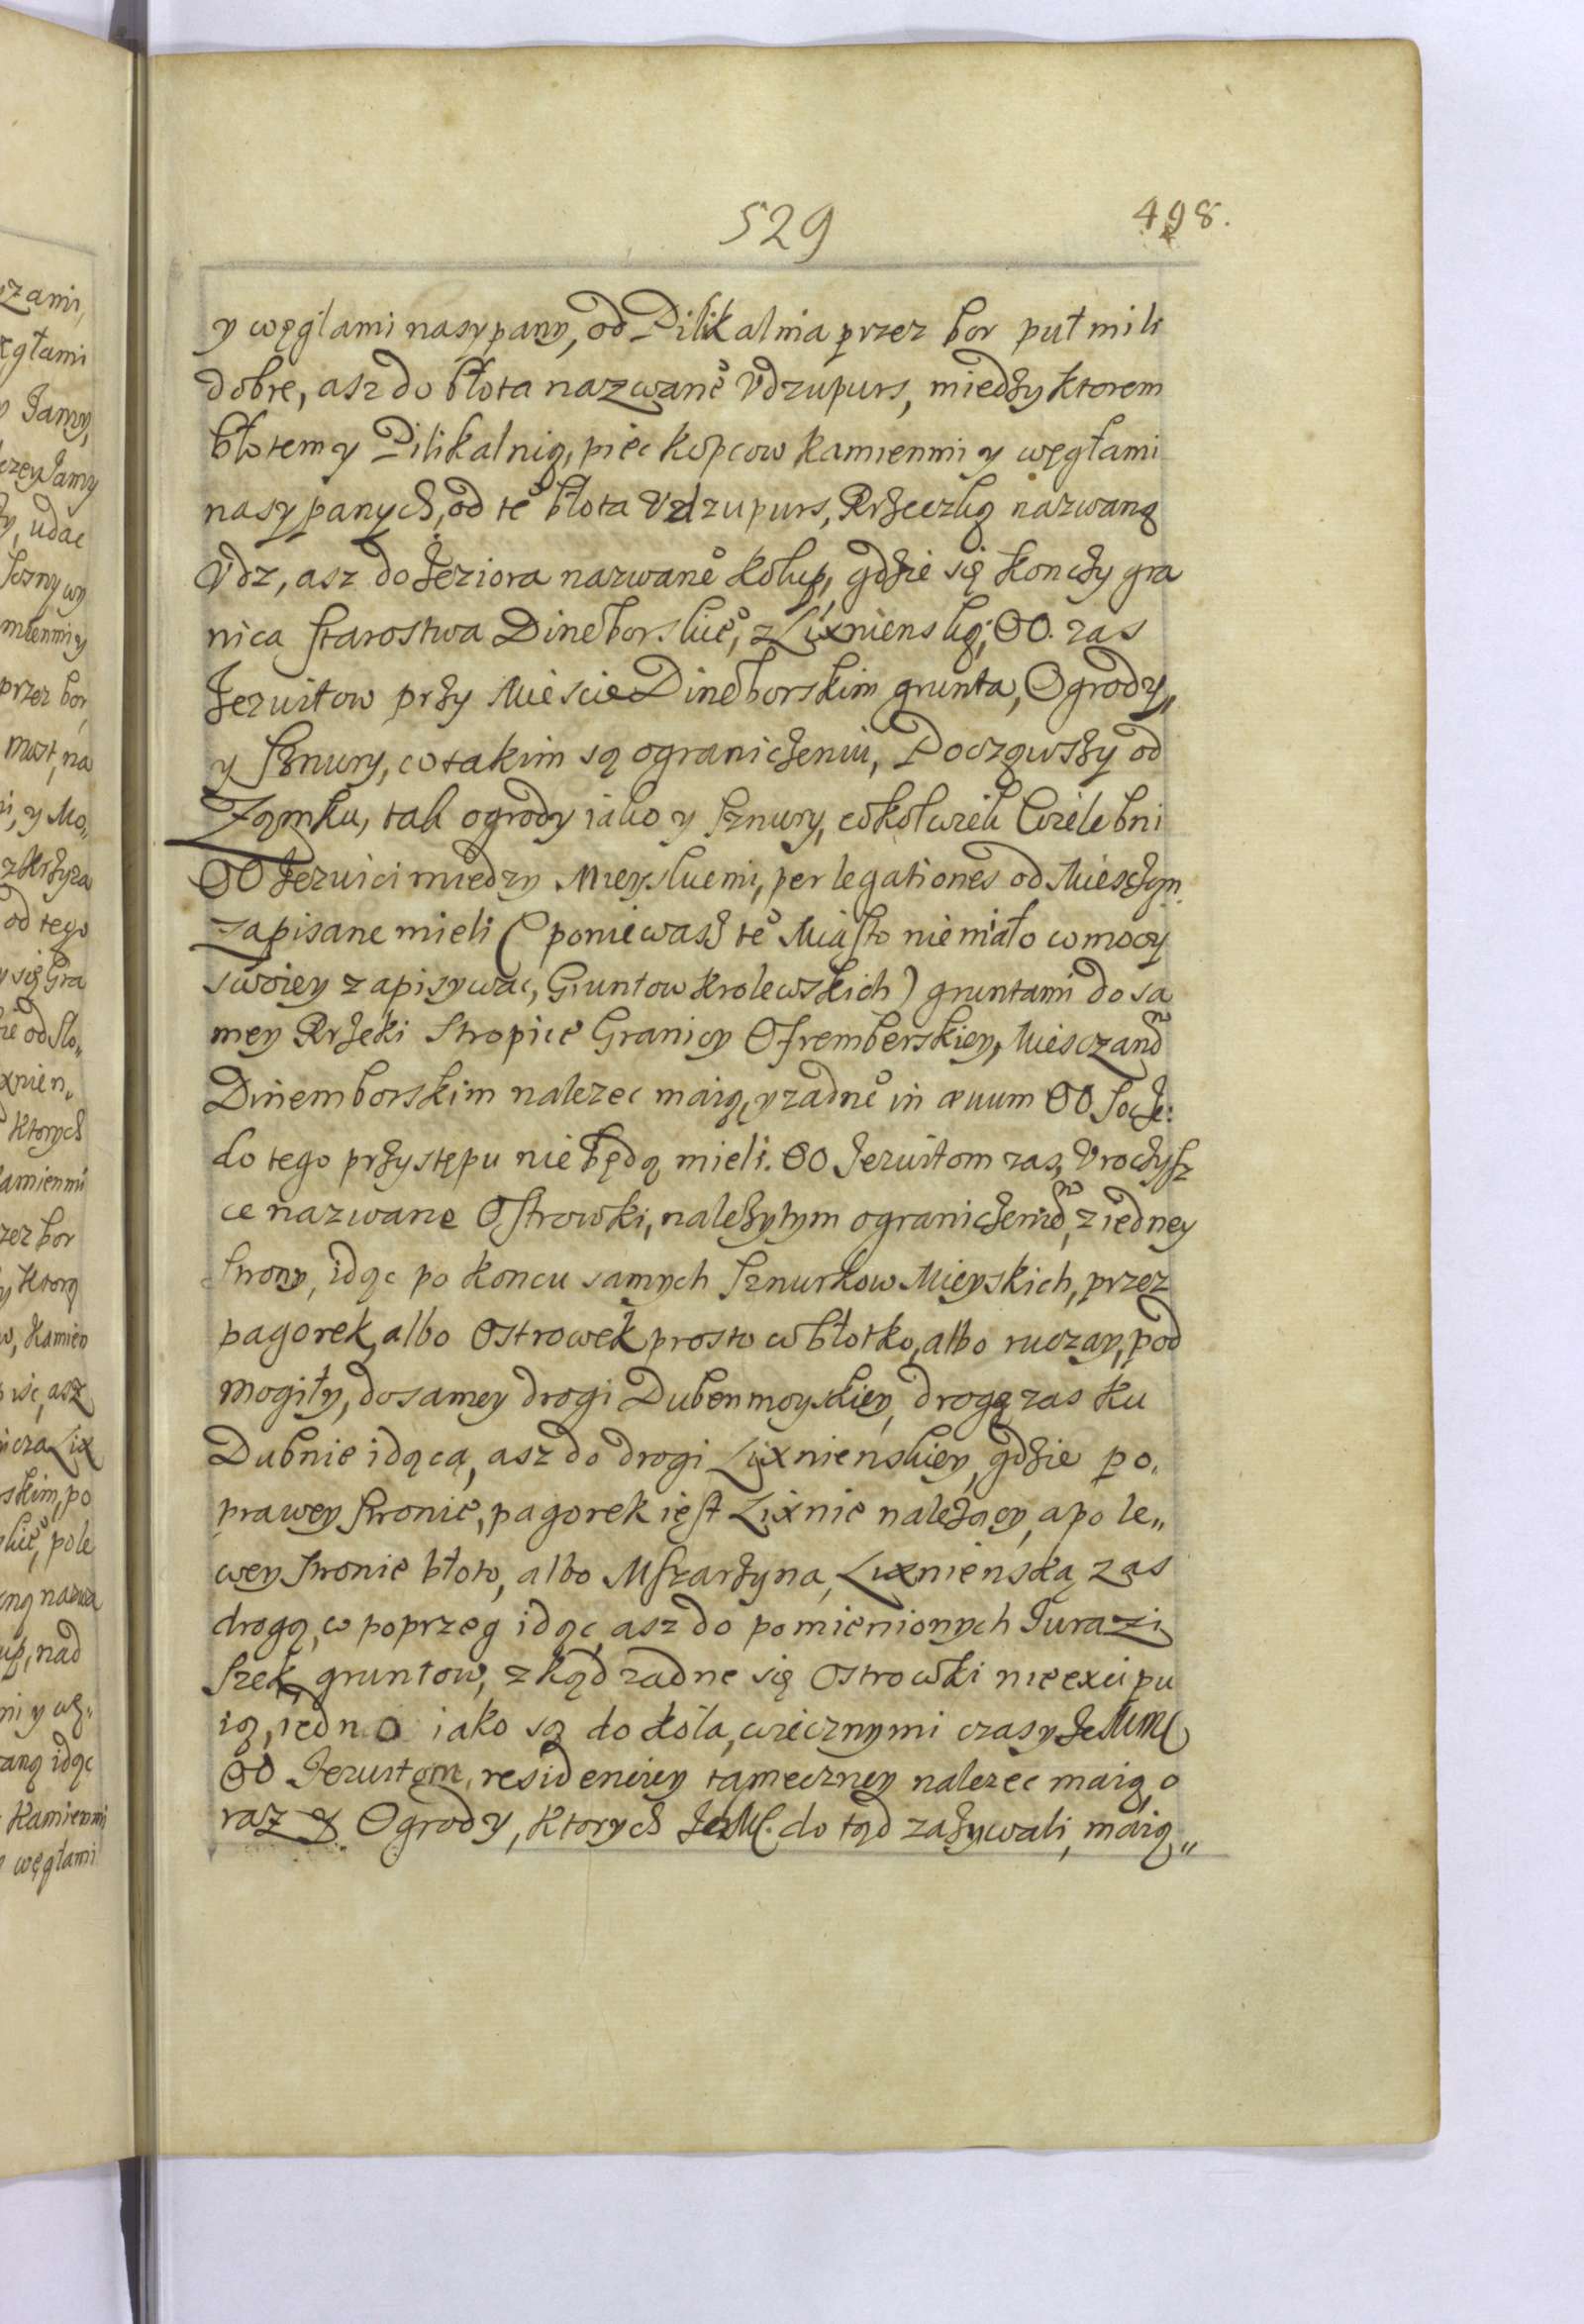 529
498.
y węglami nasypany, od Pilikalnia przez bor puł mili
dobre, asz do błota nazwane͒ Vdzupurs, między ktorem
błotem y Pilikalnią, pięc kopcow kamienmi y węgłami
nasypanych, od te͒ błota Vdzupurs, Rzeczką nazwaną
Vdz, asz do Jeziora nazwane͒ Kołup, gdzie się konczy gra
nica starostwa Dineborskie͒, z Lixnienską; OO. zas
Jezuitow przy Miescie Dineborskim grunta, Ogrody„
y sznury, w takim są ograniczeniu, Począwszy od
Zamku, tak ogrody iako y sznury, cokolwiek Wielebni
OO Jezuici miedzy Mieyskiemi, per legationes od Miesczan
zapisane mieli (poniewasz te͒ Miasto nie miało w mocy
swoiey zapisywac, Gruntow Krolewskich) gruntami do sa
mey Rzeki Stropice Granicy Ofremberskiey, Miesczanom
Dinemborskim nalezec maią, y zadne͒ in æuum OO Soc Je:
do tego przystępu nie będą mieli. OO Jezuitom zas, Vroczysz
ce nazwane Ostrowki, należytym ograniczeniem, z iedney
strony, idąc po koncu samych sznurkow Mieyskich, przez
pagorek, albo Ostrowek prosto w błotko, albo ruczay, pod
mogiły, do samey drogi Dubenmoyskiey, drogę zas ku
Dubnie idącą, asz do drogi Lixnieńskiey, gdzie po,
prawey stronie, pagorek iest Lixnie należący, a po le„
wey stronie błoto, albo Mszarzyna, Lixnienską zas
drogą, w poprzeg idąc, asz do pomienionych Jurazi
szek, gruntow, z kąd zadne się Ostrowki nie excipu
ią, iedno iako są do koła, wiecznymi czasy Je
OO Jezuitom, residenciey tameczney nalezec maią, o
raz y Ogrody, ktorych do tąd zażywali, maią„